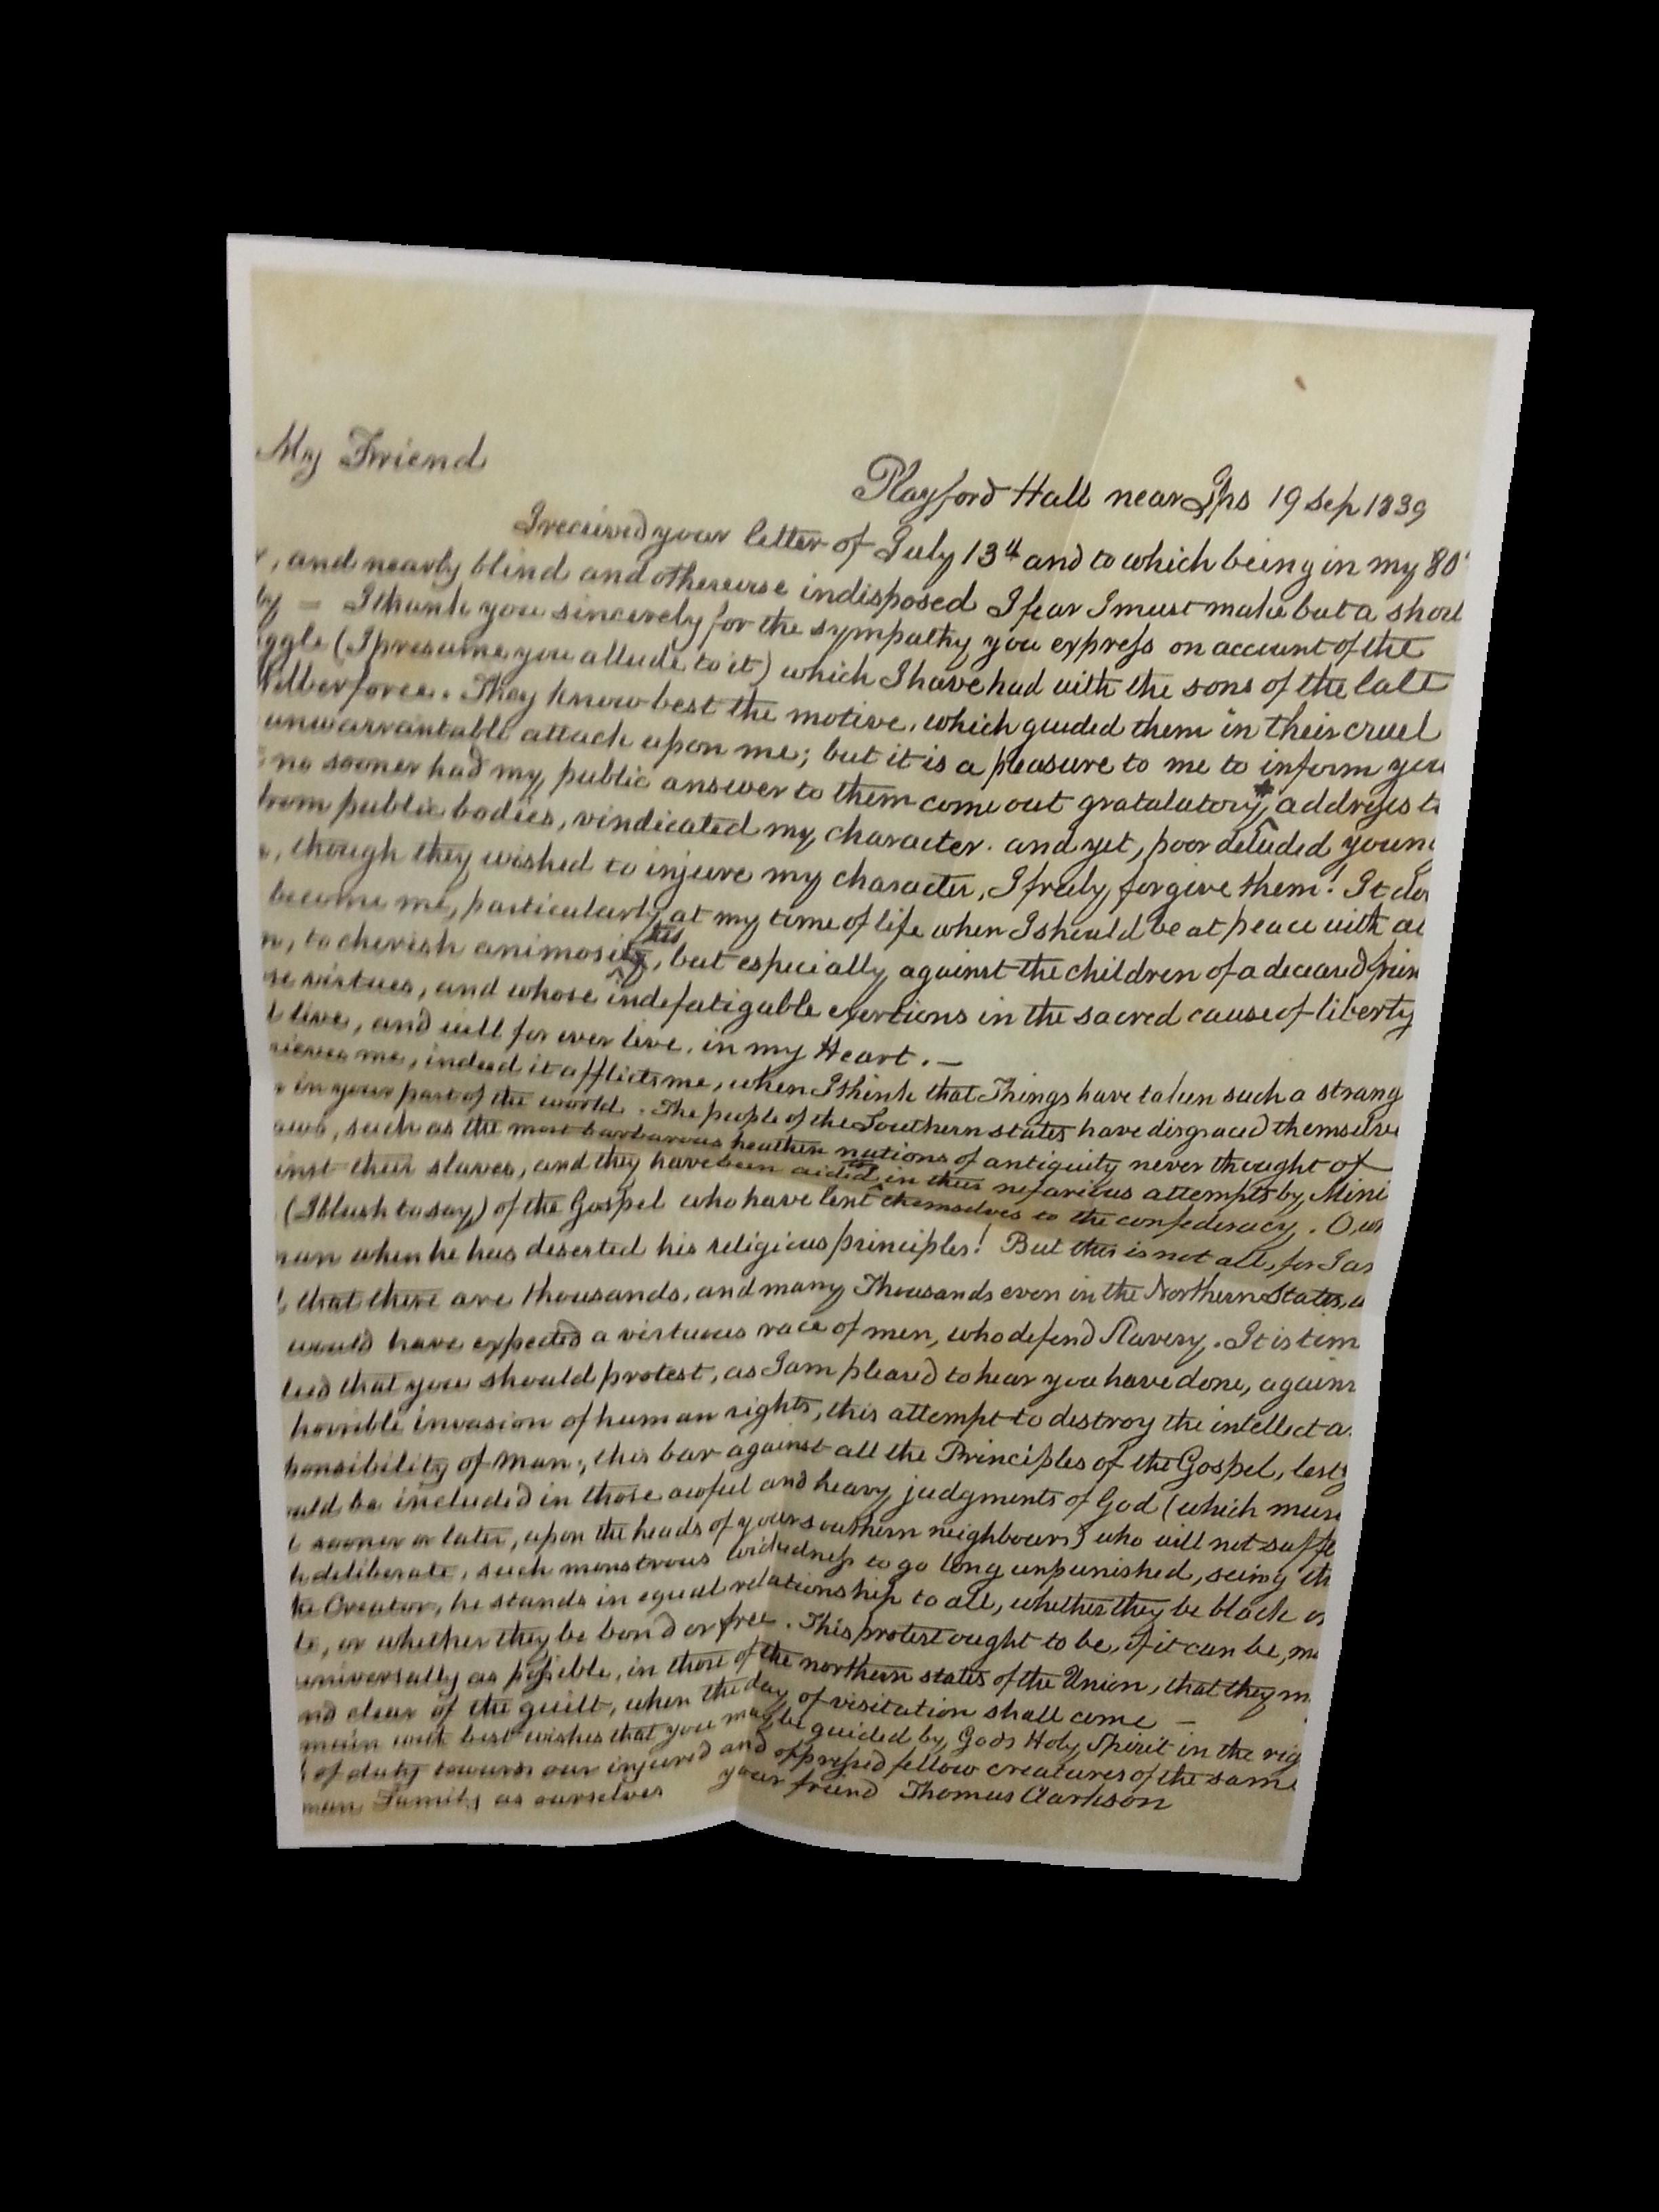 My Friend
Playford Hall near Ips 19 Sep 1839
I received your letter of July 13th and to which being in my 80
r, and nearly blind and otherwise indisposed I fear I must make but a short
by — I thank you sincerely for the sympathy you express on account of the
ggle (I presume you allude to it) which I have had with the sons of the late
Wilberforce. They know best the motive, which guided them in their cruel
unwarrantable attack upon me; but it is a pleasure to me to inform you
no sooner had my public answer to them come out gratulatory addresses to
from public bodies, vindicated my character. and yet, poor deluded young
, though they wished to injure my character, I freely forgive them! It do
become me, particularly at my time of life when I should be at peace with al
n, to cherish animosities, but especially against the children of a deceased frien
se virtues, and whose indefatigable exertions in the sacred cause of liberty
l live, and will for ever live, in my Heart. —
rieves me, indeed it afflicts me, when I think that Things have taken such a strang
n in your part of the world. The people of the Southern states have disgraced themselve
aws, such as the most barbarous heathen nations of antiquity never thought of
inst their slaves, and they have been aided in their nefarious attempts by Mini
(I blush to say) of the Gospel who have lent themselves to the confederacy. O, w
man when he has deserted his religious principles! But this is not all, for I a
that there are thousands, and many Thousands even in the Northern States, w
would have expected a virtuous race of men, who defend Slavery. It is tim
eed that you should protest, as I am pleased to hear you have done, agains
horrible invasion of human rights, this attempt to destroy the intellect a
ponsibility of Man; this bar against all the Principles of the Gospel, lest y
uld be included in those awful and heavy judgments of God (which mus
l sooner or later, upon the heads of your southern neighbours) who will not suffe
h deliberate, such monstrous wickedness to go long unpunished, seing th
the Creator, he stands in equal relationship to all, whether they be black or
te, or whether they be bond or free. This protest ought to be, if it can be, m
universally as possible, in those of the northern states of the Union, that they m
nd clear of the guilt, when the day of visitation shall come —
main with best wishes that you may be guided by Gods Holy Spirit in the rig
h of duty towards our injured and oppressed fellow creatures of the same
man Family as ourselves your friend Thomas Clarkson